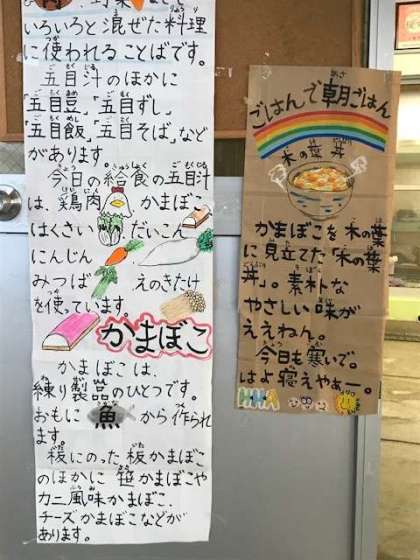 いろいろと混ぜた料理
に使われることばです。
五目汁のほかに
「五目豆」「五目ずし」
「五目飯」「五目そば」など
があります。
今日の給食の五目汁
は、鶏肉 かまぼこ
はくさい だいこん
にんじん
みつば えのきたけ
を使っています。
かまぼこ
かまぼこは、
練り製品のひとつです。
おもに 魚 から作られ
ます。
板にのった板かまぼこ
のほかに 笹かまぼこや
カニ風味かまぼこ、
チーズかまぼこなどが
あります。
ごはんで朝ごはん
木の葉丼
かまぼこを木の葉
に見立てた「木の葉
丼」。素朴な
やさしい味が
ええねん。
今日も寒いで。
はよ寝えやぁー。